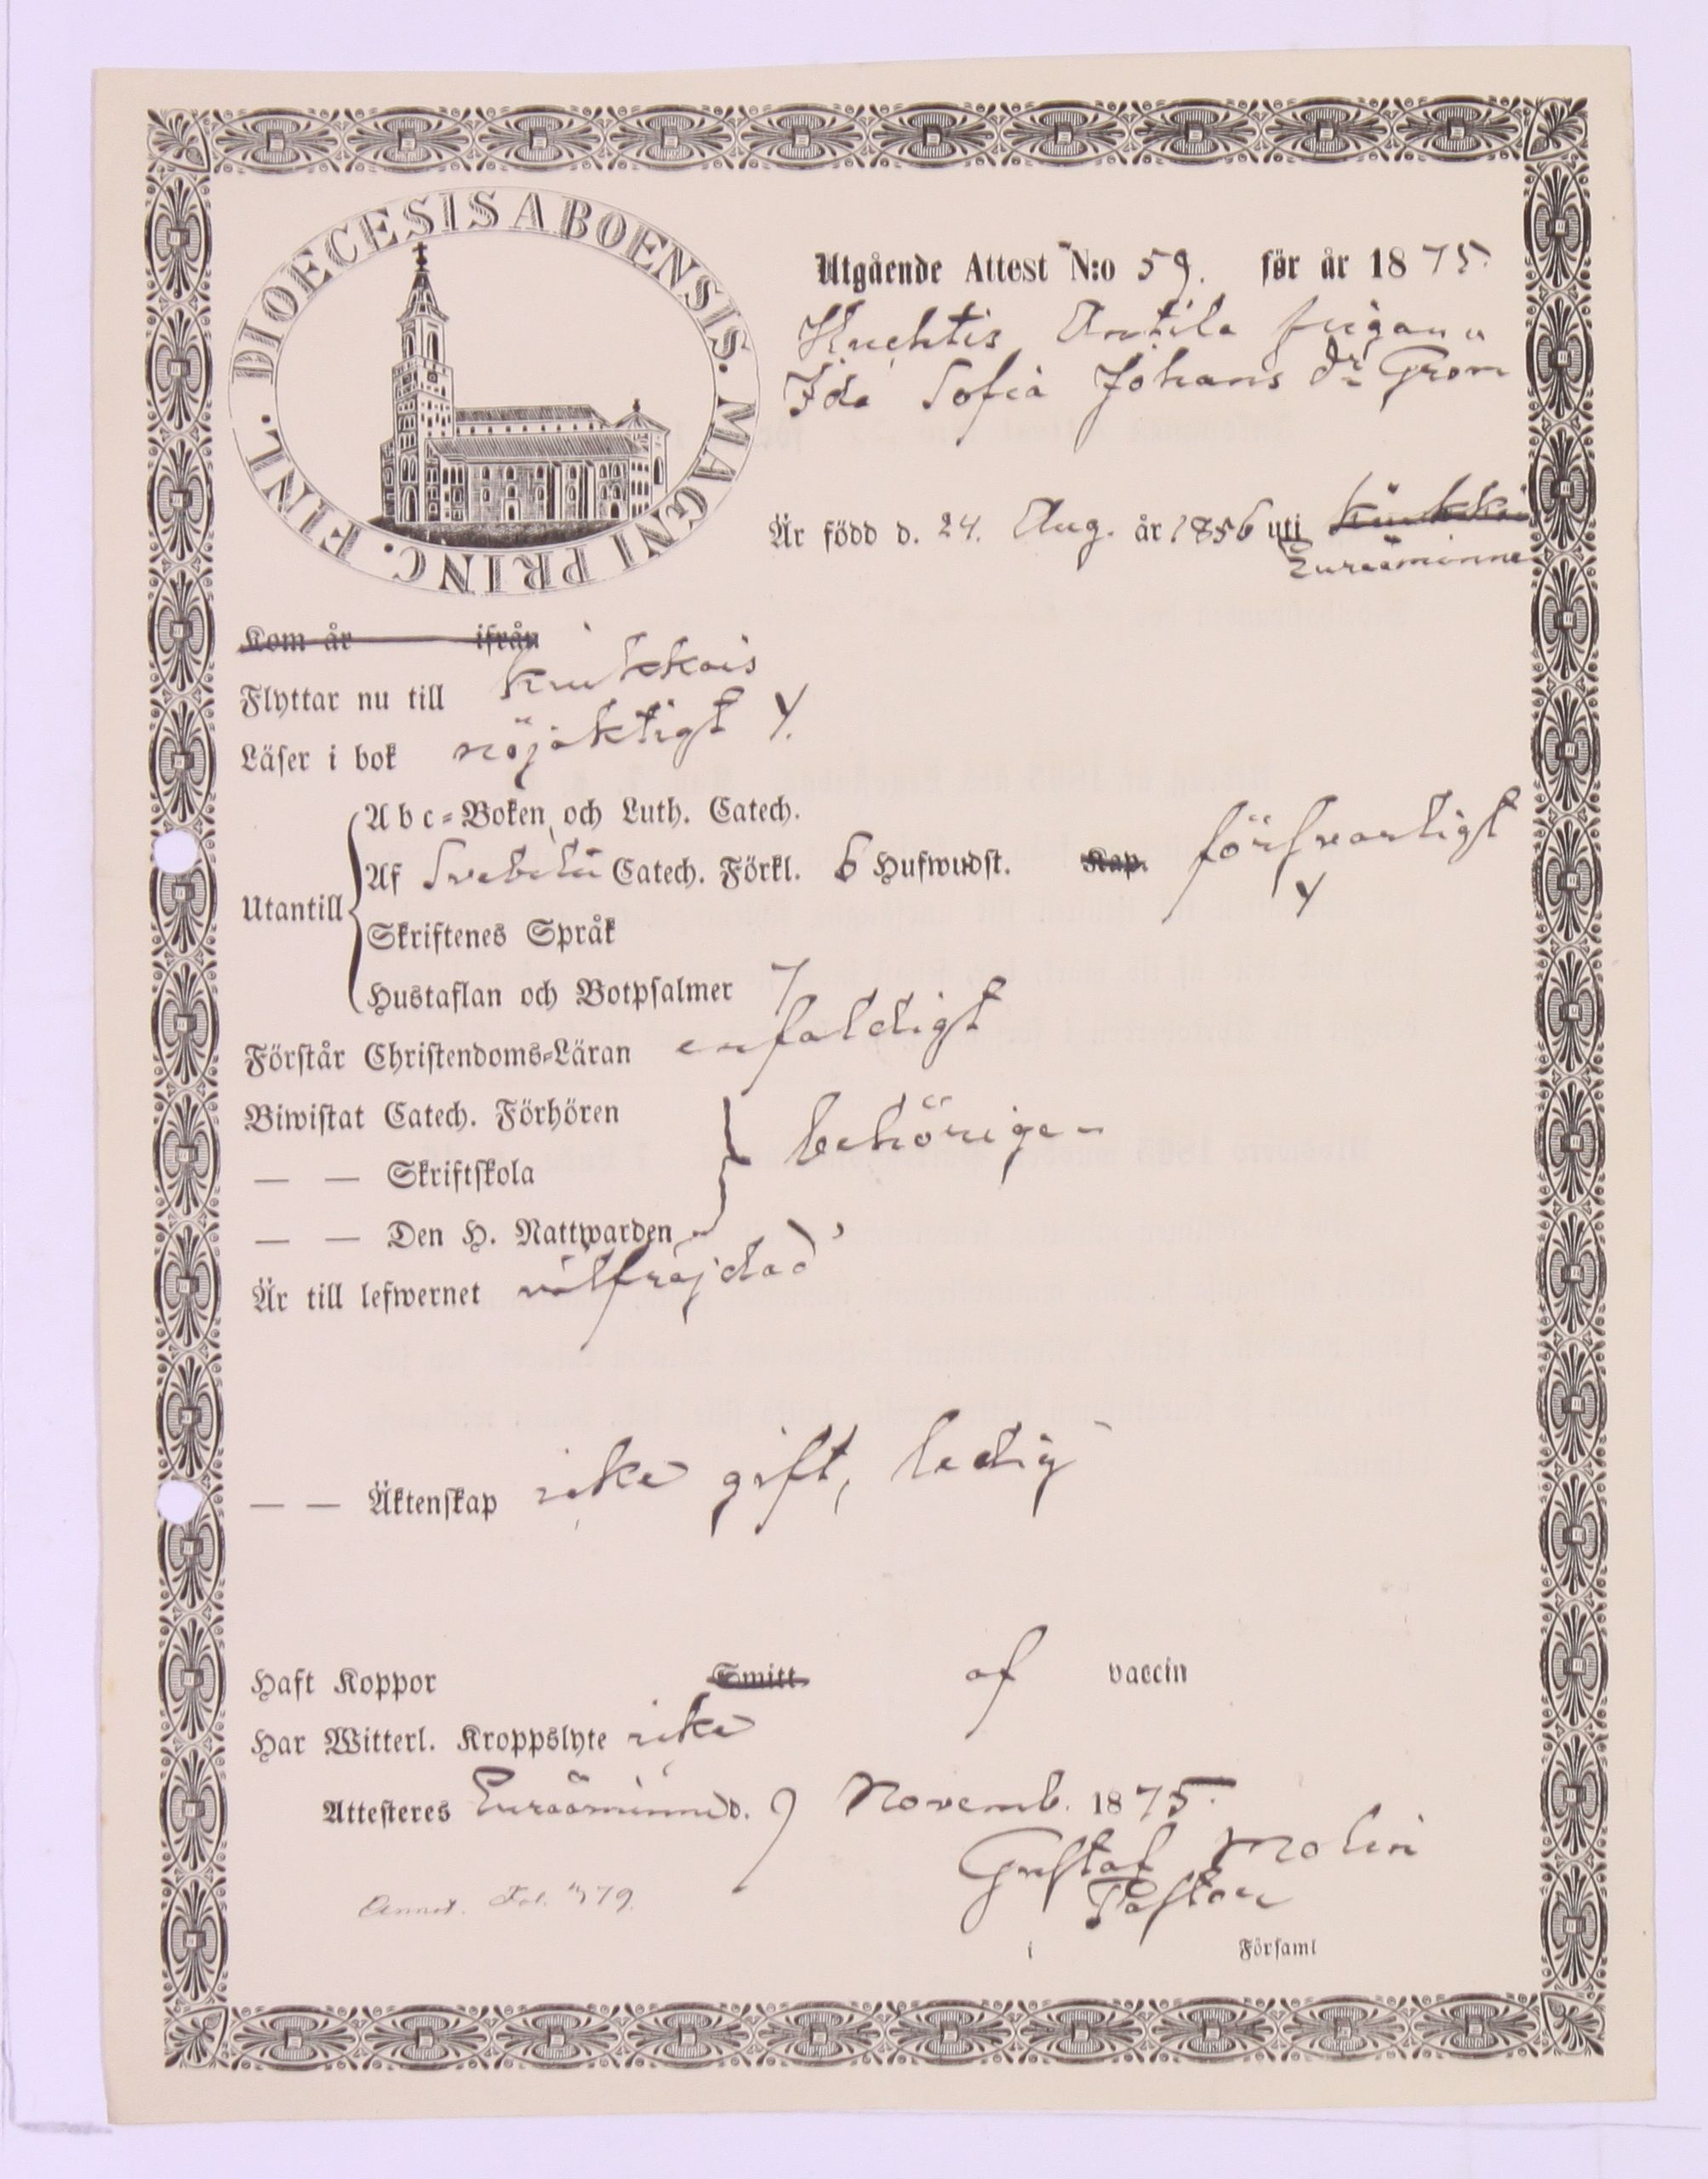 DIOECESIS ABOENSIS. MAGNI PRINC. FINL.
Utgående Attest N:o 59. för år 1875.
Huchtis Antila pigan
Ida Sofia Johans dr Grön
Är född d. 24. Aug. år 1856 uti
Euraåminne
Kom år ifrån
Flyttar nu till Kiukkais
Läser i bok nöjaktigt Y.
Abc-Boken och Luth. Catech.
Af Svebelii Catech. Förkl. 6 Hufwudst. Kap. försvarligt
Y
Utantill
Skriftenes Språk
Hustaflan och Botpsalmer 7
Förstår Christendoms-Läran enfaldigt
Biwistat Catech. Förhören
— — Skriftskola behörigen
— — Den H. Nattwarden
Är till lefwernet välfräjdad
— — Äktenskap icke gift, ledig
Haft Koppor Smitt af vaccin
Har Witterl. Kroppslyte icke
Attesteres Euraåminne d. 9 Novemb. 1875.
Gustaf Molin
Pastor
Annot. Fol. 579.
i Församl